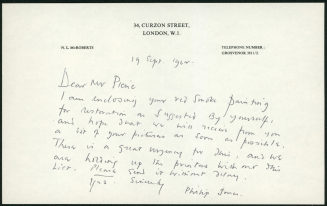 34, CURZON STREET,
LONDON, W.1.
N. L. McROBERTS
TELEPHONE NUMBER:
GROSVENOR
19 Sept.
Dear Mr
I am enclosing your red Smoke painting
for restoration as suggested by yourself,
and hope that we will receive from you
a list of your pictures as soon as possible.
There is a great urgency for this, and we
are holding up the printers with our
List. Please send it without delay.
Yrs. Sincerely
Philip Jones.